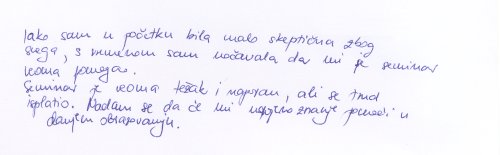 Iako sam u početku bila malo skeptična zbog
svega, s vremenom sam uočavala da mi je seminar
veoma pomogao.
Seminar je veoma težak i naporan, ali se trud
isplatio. Nadam se da će mi znanje pomoći u
daljem obrazovanju.